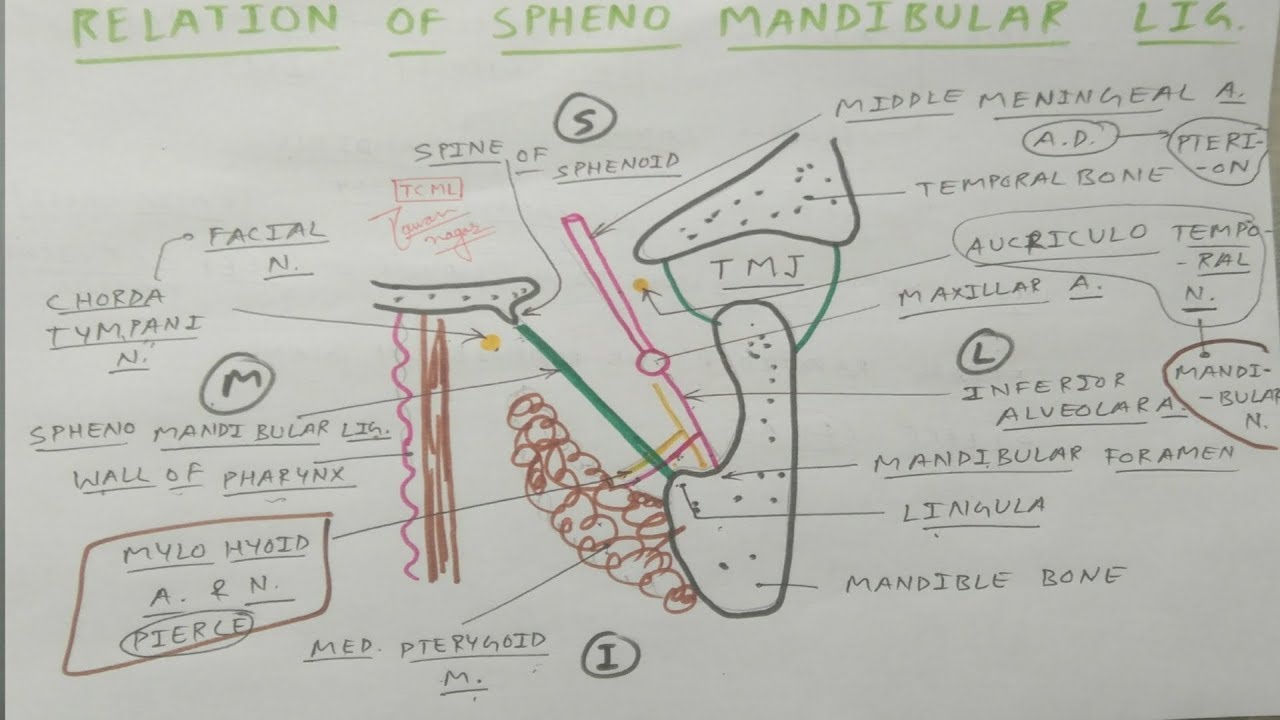 RELATION OF SPHENO MANDIBULAR LIG.
S
MIDDLE MENINGEAL A.
A.D.
PTERI-
-ON
SPINE OF SPHENOID
TCML
Tawan
nagar
TEMPORAL BONE
FACIAL
N.
TMJ
AUCRICULO TEMPO-
-RAL
N.
MAXILLAR A.
CHORDA
TYMPANI
N.
M
L
INFERIOR
ALVEOLAR A.
MANDI-
-BULAR
N.
SPHENO MANDIBULAR LIG.
WALL OF PHARYNX
MANDIBULAR FORAMEN
LINGULA
MYLO HYOID
A. & N.
PIERCE
MANDIBLE BONE
MED. PTERYGOID
M.
I